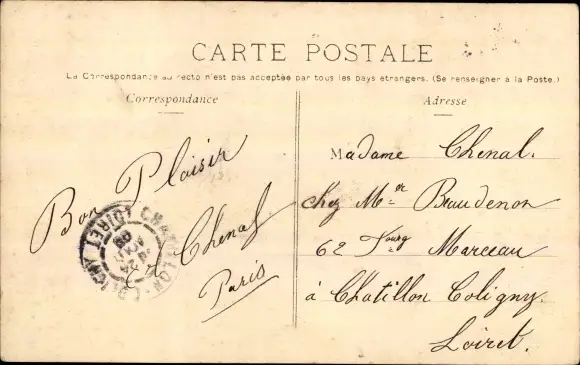 CARTE POSTALE
La Correspondance au recto n'est pas acceptée par tous les pays étrangers. (Se renseigner à la Poste.)
Correspondance
Adresse
Bon Plaisir
Chenal
Paris
Madame Chenal.
chez Mer Beaudenon
62 Fourg Marceau
à Chatillon Coligny.
Loiret.
CHATILLON-COLIGNY
LOIRET